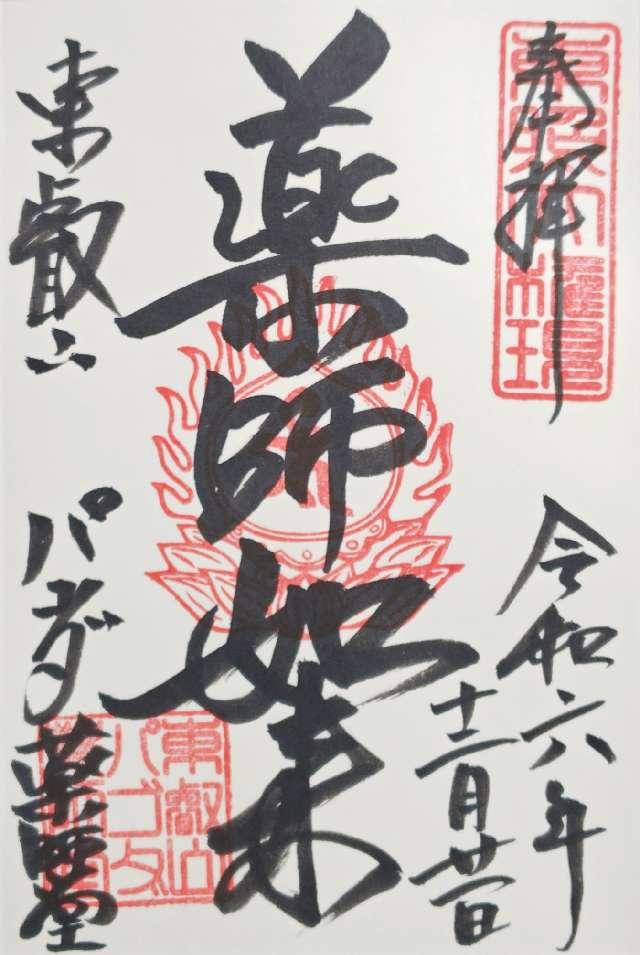 奉拝
東照大權現
令和六年
十二月廿一日
薬師如来
東叡山
パゴダ薬師堂
東叡山
パゴダ